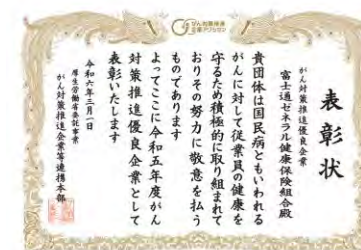 がん対策推進
企業アクション
表彰状
がん対策推進優良企業
富士通ゼネラル健康保険組合殿
貴団体は国民病ともいわれる
がんに対して従業員の健康を
守るため積極的に取り組まれて
おりその努力に敬意を払う
ものであります
よってここに令和五年度がん
対策推進優良企業として
表彰いたします
令和六年三月一日
厚生労働省委託事業
がん対策推進企業等連携本部